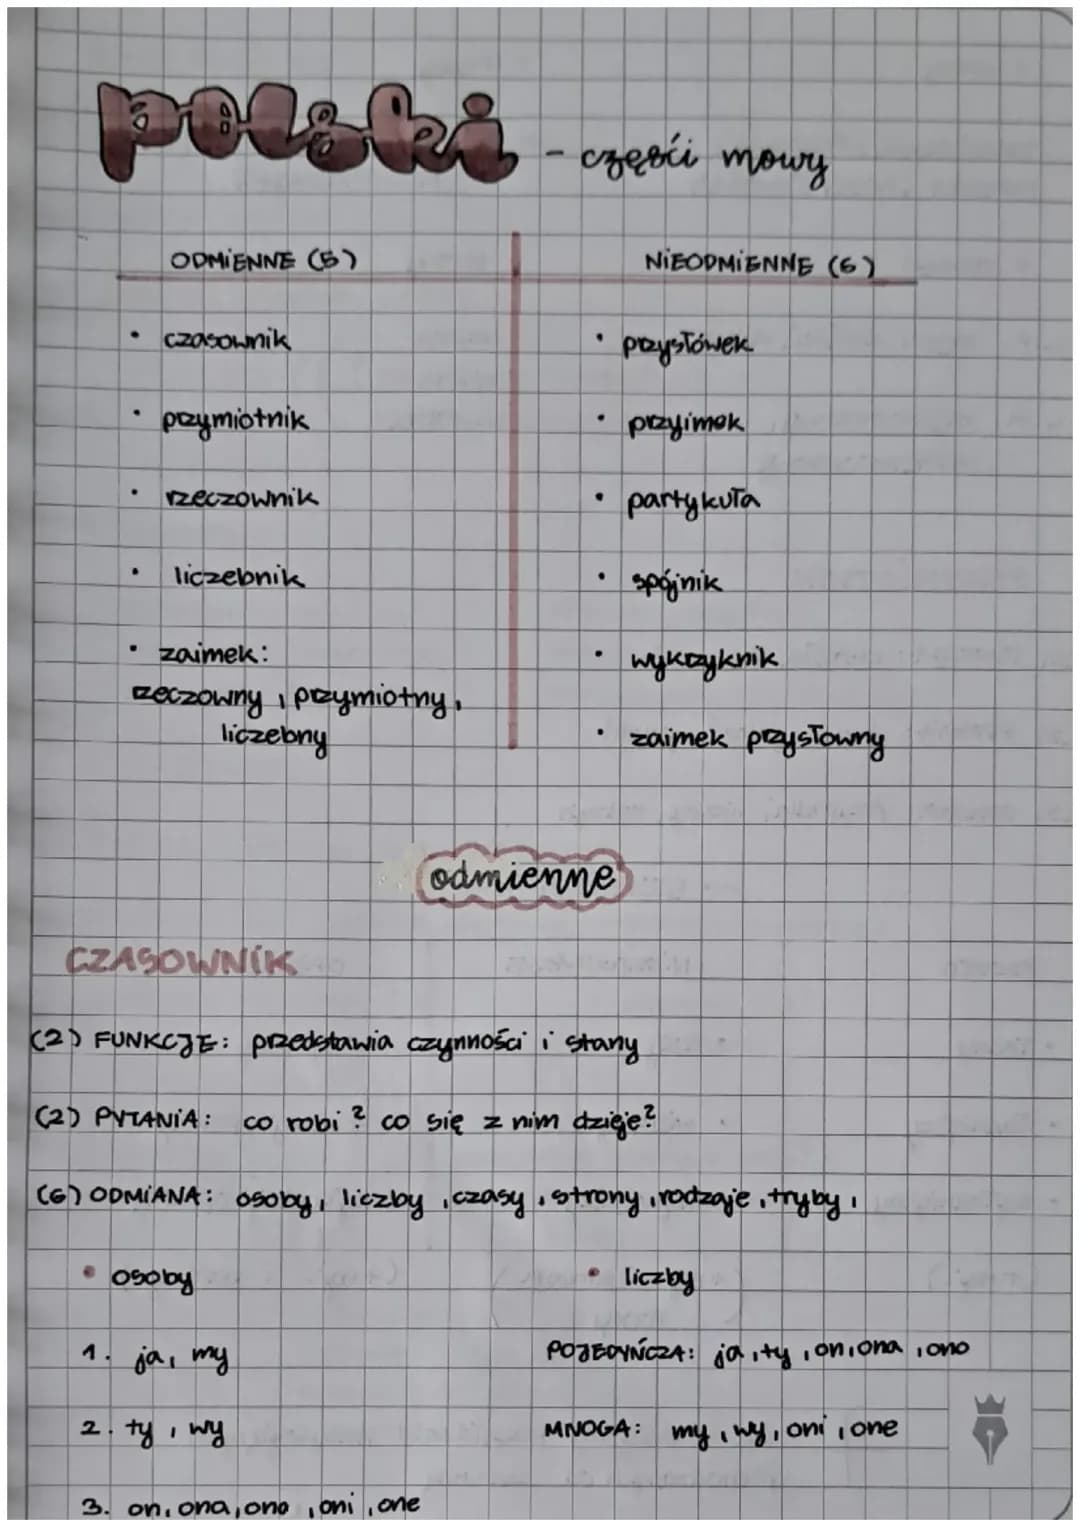 polski - części mowy
ODMIENNE (5)
NIEODMIENNE (6)
• czasownik
• przysłówek
• przymiotnik
• przyimek
• rzeczownik
• partykuła
• liczebnik
• spójnik
• zaimek:
rzeczowny, przymiotny,
liczebny
• wykrzyknik
• zaimek przysłowny
odmienne
CZASOWNIK
(2) FUNKCJE: przedstawia czynności i stany
(2) PYTANIA: co robi? co się z nim dzieje?
(6) ODMIANA: osoby, liczby, czasy, strony, rodzaje, tryby,
• osoby
• liczby
1. ja, my
POJEDYŃCZA: ja, ty, on, ona, ono
2. ty, wy
MNOGA: my, wy, oni, one
3. on, ona, ono, oni, one